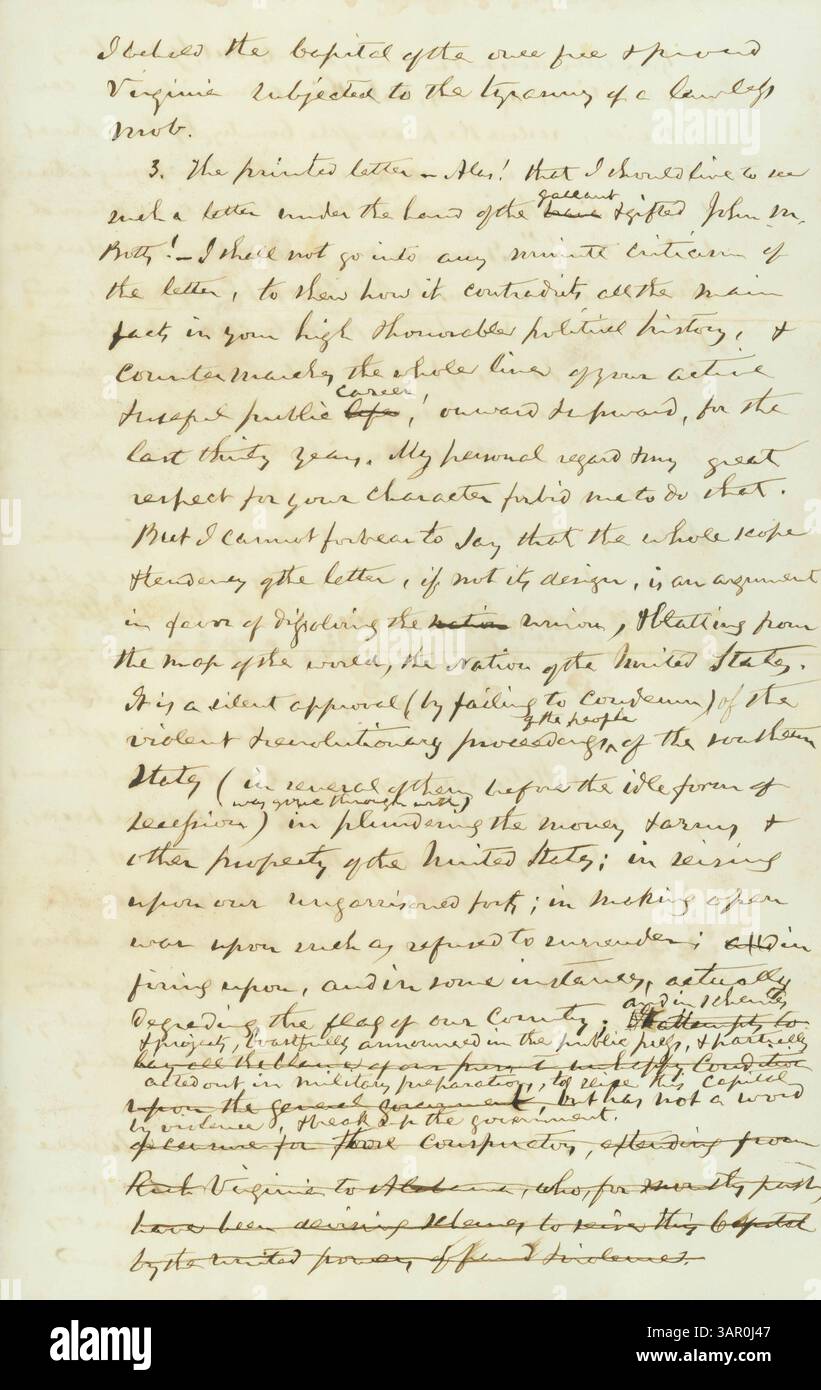 I behold the Capital of the once free & proud
Virginia subjected to the tyranny of a lawless
mob.
3. The printed letter – Alas! that I should live to see
gallant
such a letter under the hand of the & gifted John M.
Botts! – I shall not go into any minute criticism of
the letter, to shew how it contradicts all the main
facts in your high & honorable political history, &
countermarches the whole line of your active
career
& useful public life, onward & upward, for the
last thirty years. My personal regard & my great
respect for your character forbid me to do that.
But I cannot forbear to say that the whole scope
& tendency of the letter, if not its design, is an argument
in favor of dissolving the nation union, & blotting from
the map of the world, the Nation of the United States.
It is a silent approval (by failing to condemn) of the
of the people
violent & revolutionary proceedings, of the southern
States (in several of them before the idle form of
was gone through with)
secession) in plundering the money & arms &
other property of the United States; in seising
upon our ungarrisoned forts; in making open
war upon such as refused to surrender; and in
firing upon, and in some instances, actually
and in schemes
degrading the flag of our Country; It attempts to
& projects, boastfully announced in the public press, & partially
lay all the blame of our present unhappy condition
acted out in military preparations, to seise this capital
upon the general government, but has not a word
by violence, & break up the government.
of censure for those conspirators, extending from
Virginia to Alabama, who, for months past,
have been devising schemes to seise this Capital
by the united powers of fraud & violence.
alamy
alamy
Image ID: 3AR0J47
www.alamy.com